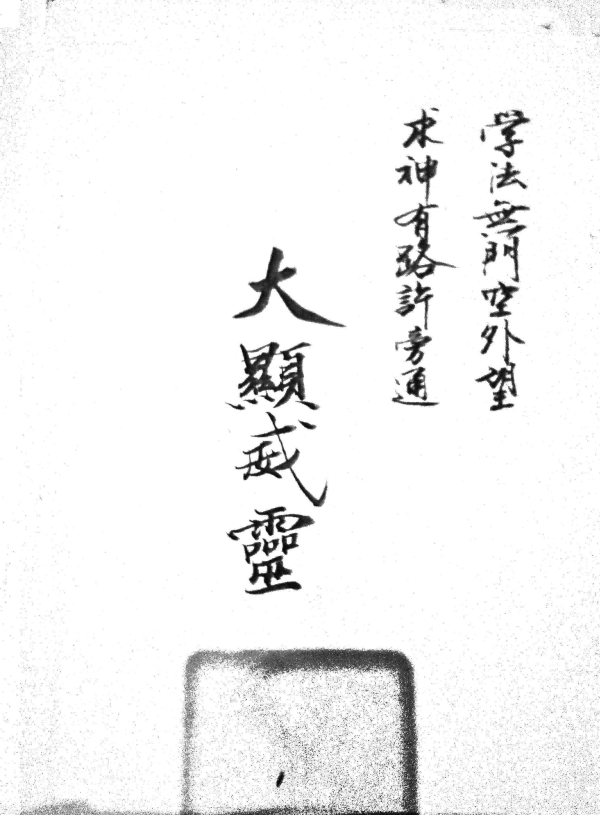 学法無門空外望
求神有路許旁通
大顯威靈